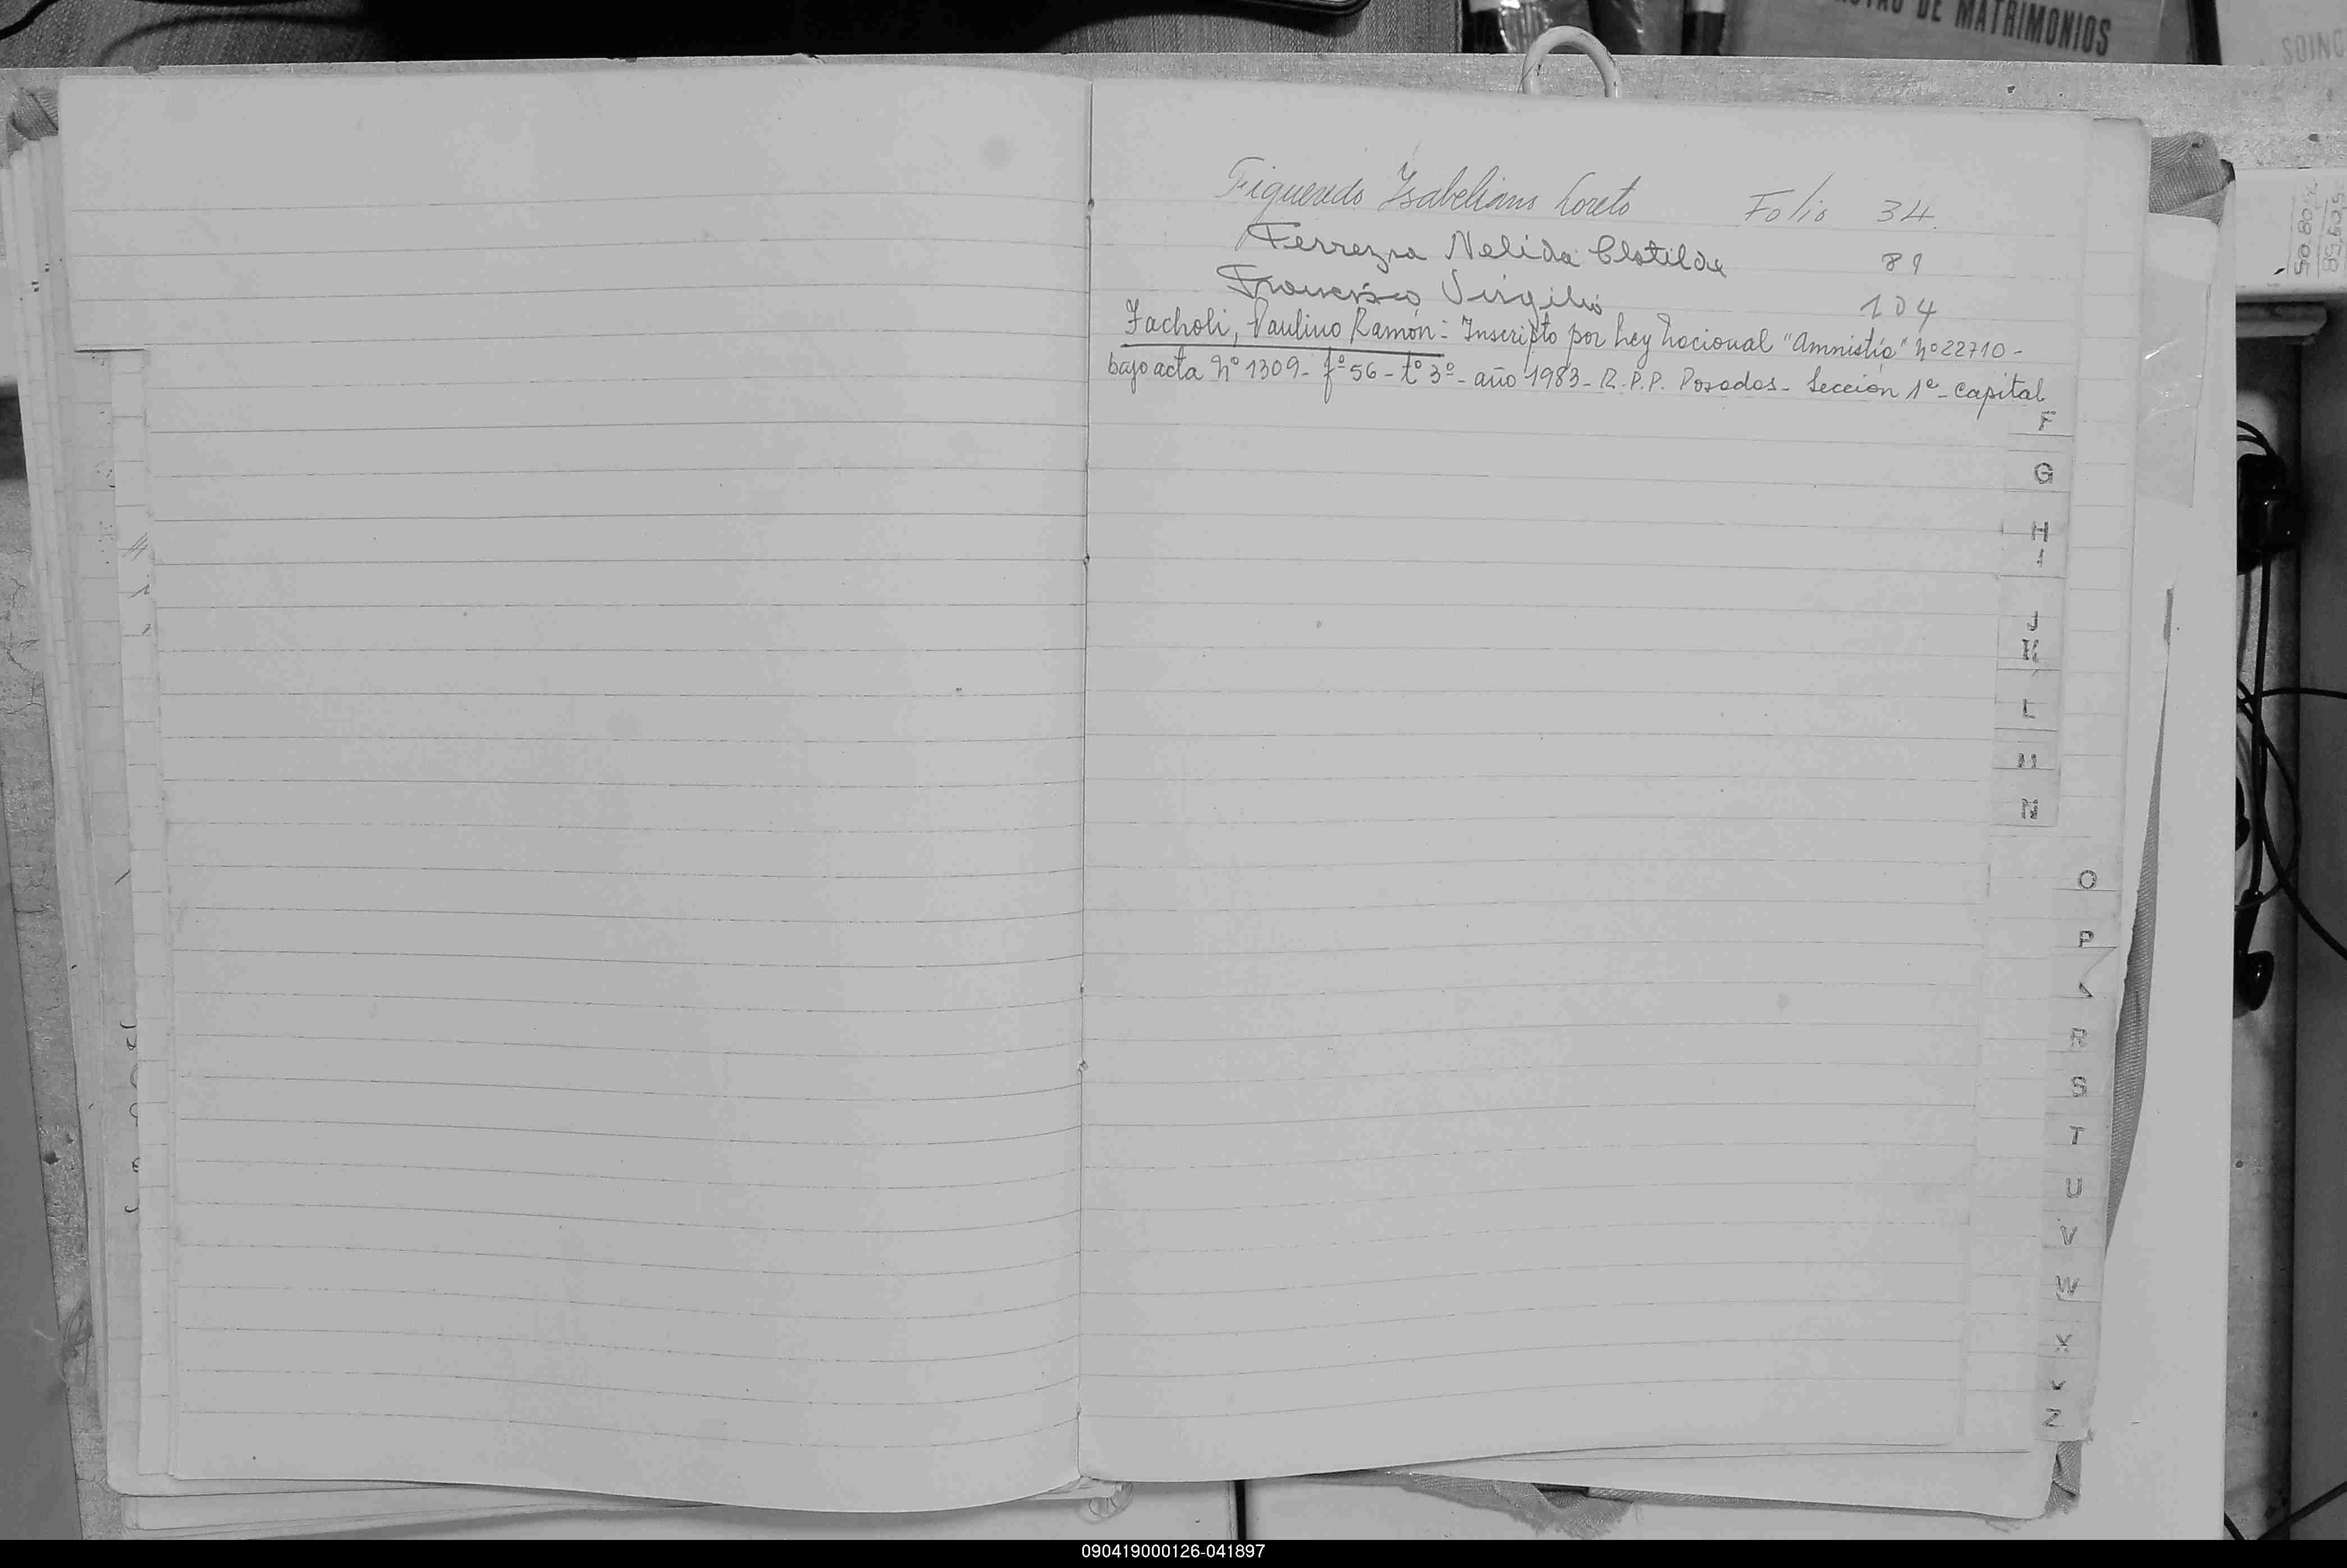 DE MATRIMONIOS
Figueredo Isabeliano Loreto Folio 34.
Ferreyra Nelida Clotilde 89
Francisco Virgilio 104
Facholi, Paulino Ramón: Inscripto por Ley Nacional "Amnistía" nº 22710 -
bajo acta Nº 1309 - fº 56 - tº 3º - año 1983 - R.P.P. Posadas - Sección 1ª - Capital
F
G
H
I
J
K
L
M
N
O
P
R
S
T
U
V
W
X
Y
Z
090419000126-041897